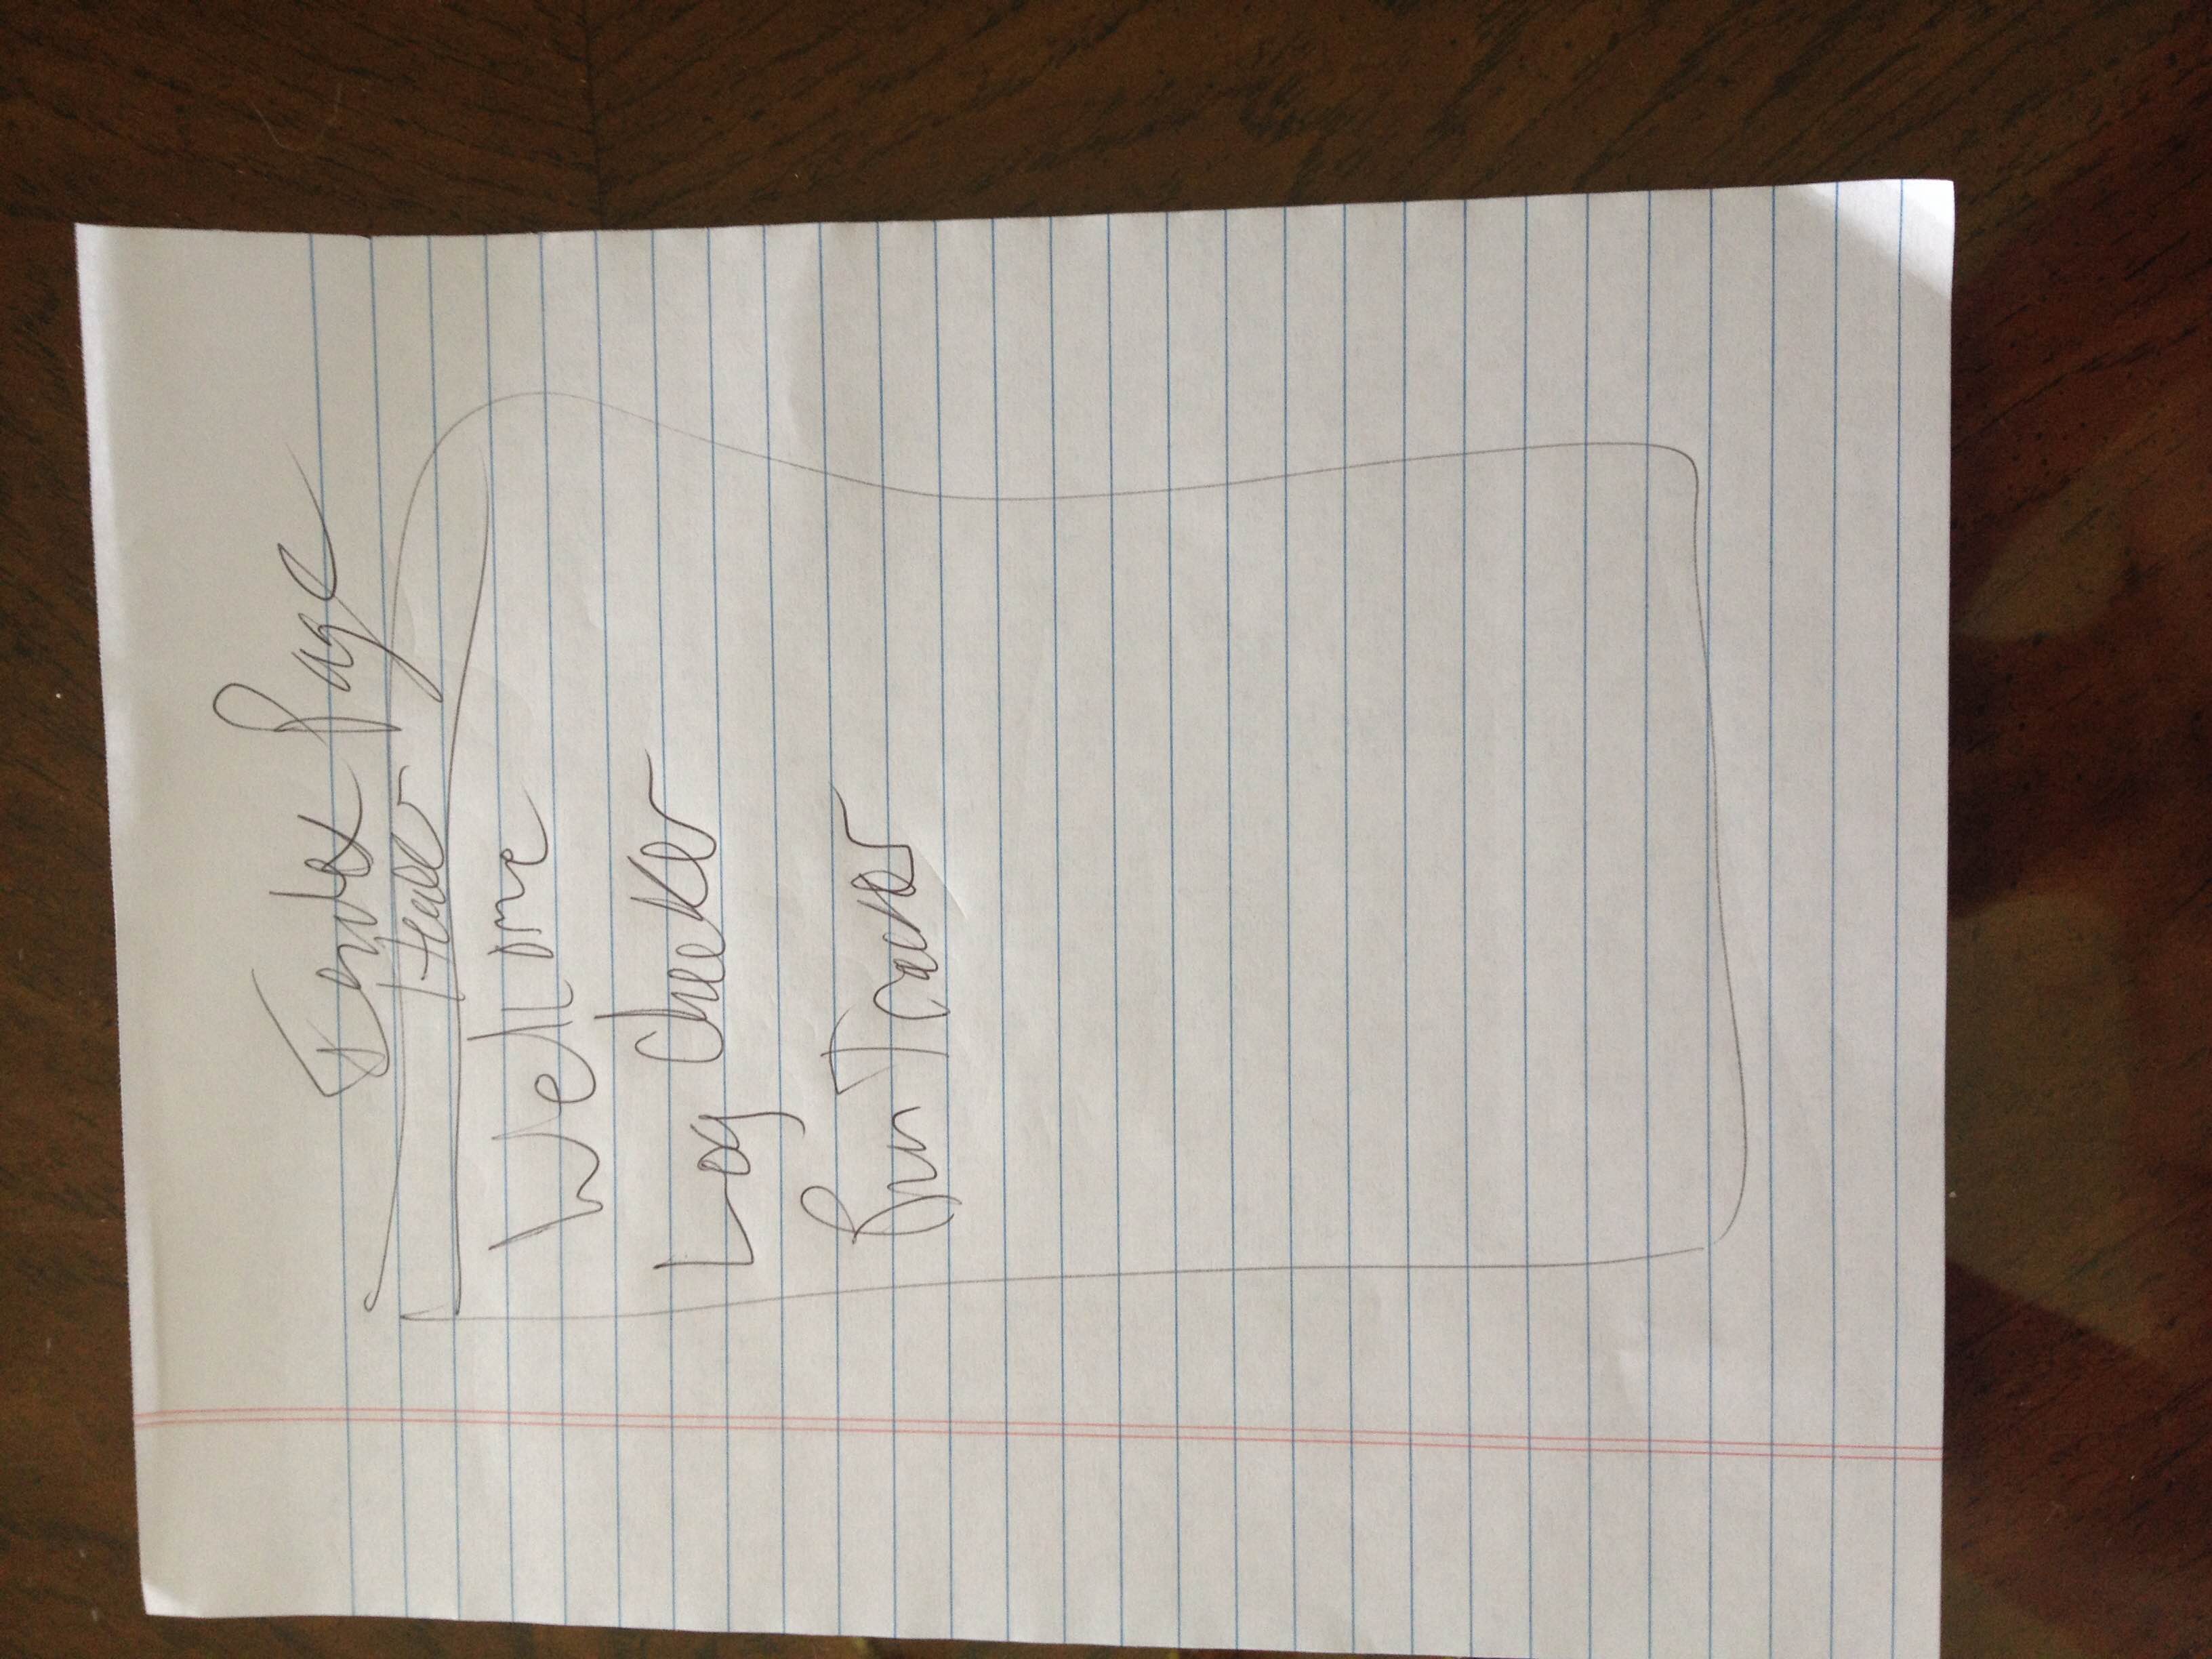 Index Page
Header
Welcome
Log Checker
Run Tracker